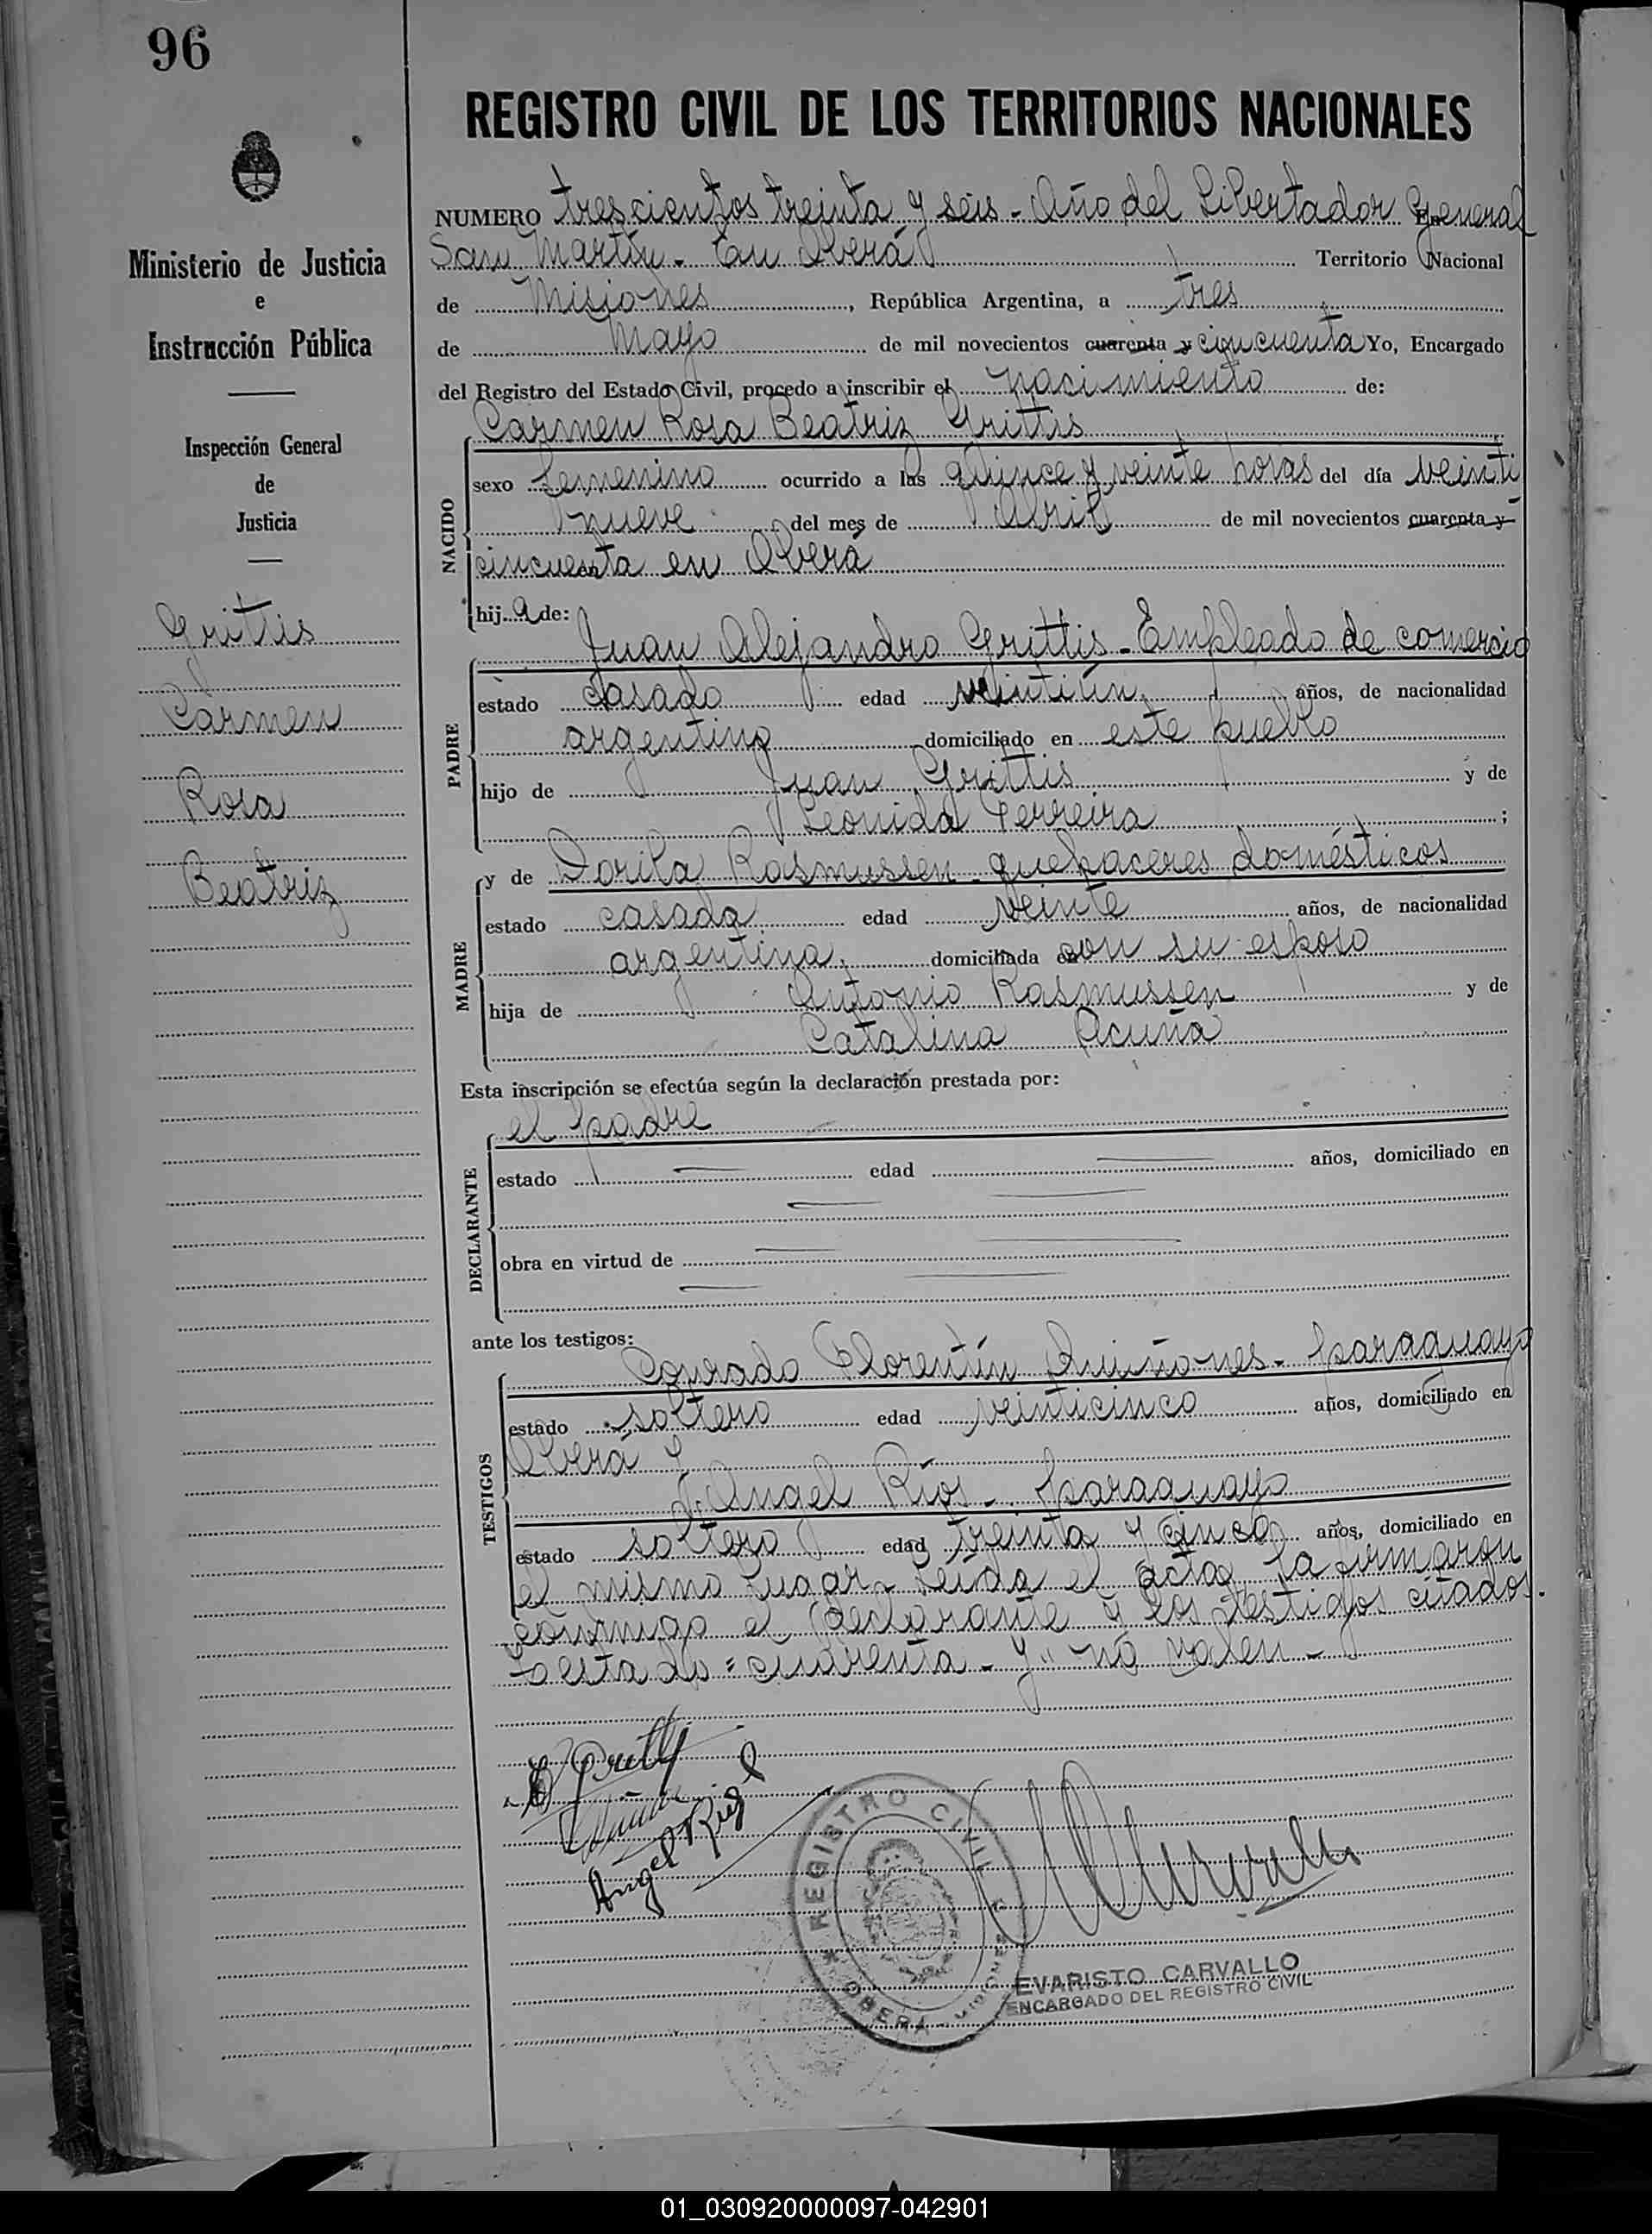 96
REGISTRO CIVIL DE LOS TERRITORIOS NACIONALES
Ministerio de Justicia
e
Instrucción Pública
Inspección General
de
Justicia
Grittis
Carmen
Rosa
Beatriz
NUMERO trescientos treinta y seis - Año del Libertador General
San Martín - En Oberá Territorio Nacional
de Misiones, República Argentina, a tres
de Mayo de mil novecientos cuarenta y cincuenta Yo, Encargado
del Registro del Estado Civil, procedo a inscribir el nacimiento de:
Carmen Rosa Beatriz Grittis
NACIDO
sexo femenino ocurrido a las quince y veinte horas del día veinti
nueve del mes de Abril de mil novecientos cuarenta y
cincuenta en Oberá
hija de:
PADRE
Juan Alejandro Grittis - Empleado de comercio
estado casado edad veintiún años, de nacionalidad
argentino domiciliado en este pueblo
hijo de Juan Grittis y de
Leonida Ferreira ;
MADRE
y de Dorila Rasmussen - quehaceres domésticos
estado casada edad veinte años, de nacionalidad
argentina, domiciliada con su esposo
hija de Antonio Rasmussen y de
Catalina Acuña
Esta inscripción se efectúa según la declaración prestada por:
DECLARANTE
el padre
estado edad años, domiciliado en
obra en virtud de
ante los testigos:
TESTIGOS
Conrado Florentín Quiñones - paraguayo
estado soltero edad veinticinco años, domiciliado en
Oberá y
Angel Ríos - paraguayo
estado soltero edad treinta y cinco años, domiciliado en
el mismo lugar - Leída el acta, la firmaron
conmigo el declarante y los testigos citados.
Testado = cuarenta - y" no valen -
Angel Rios
REGISTRO CIVIL
OBERÁ MISIONES
EVARISTO CARVALLO
ENCARGADO DEL REGISTRO CIVIL
01_030920000097-042901